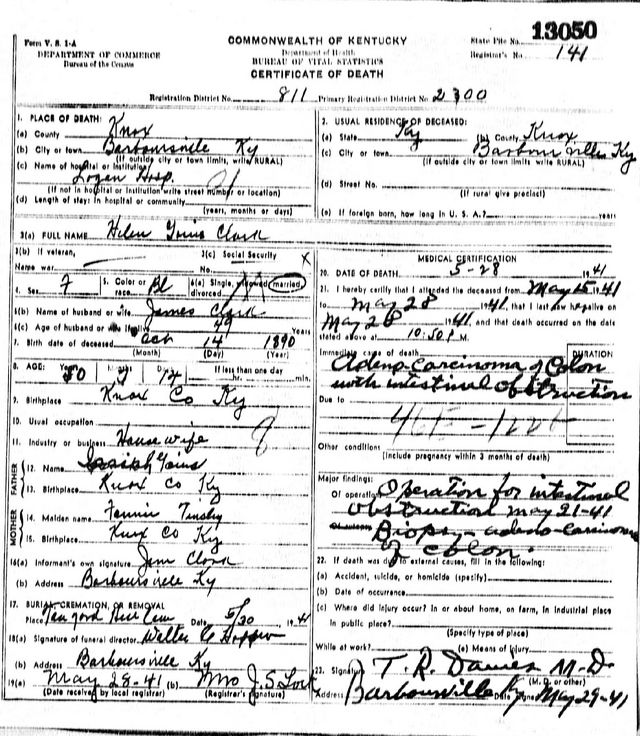 13050
Form V. S. 1-A
DEPARTMENT OF COMMERCE
Bureau of the Census
COMMONWEALTH OF KENTUCKY
Department of Health
BUREAU OF VITAL STATISTICS
CERTIFICATE OF DEATH
State File No.
Registrar's No. 141
Registration District No. 811 Primary Registration District No. 2300
1. PLACE OF DEATH:
(a) County Knox
(b) City or town Barboursville Ky
(If outside city or town limits, write RURAL)
(c) Name of hospital or institution
Logan Hosp.
(If not in hospital or institution write street number or location)
(d) Length of stay: In hospital or community
(years, months or days)
2. USUAL RESIDENCE OF DECEASED:
(a) State Ky (b) County Knox
(c) City or town Barbourville Ky
(If outside city or town limits write RURAL)
(d) Street No.
(If rural give precinct)
(e) If foreign born, how long in U. S. A.? years
3(a) FULL NAME Helen Goins Clark
3(b) If veteran,
Name war
3(c) Social Security
No. X
4. Sex F 5. Color or race Bl 6(a) Single, widowed, married, divorced
6(b) Name of husband or wife James Clark
6(c) Age of husband or wife if alive 49 Years
7. Birth date of deceased Oct 14 1890
(Month) (Day) (Year)
8. AGE: Years 50 If less than one day
hr. min.
9. Birthplace Knox Co Ky
10. Usual occupation
11. Industry or business House wife
FATHER
12. Name Goins
13. Birthplace Knox Co Ky
MOTHER
14. Maiden name Fannie Tinsley
15. Birthplace Knox Co Ky
16(a) Informant's own signature Jim Clark
(b) Address Barboursville Ky
17. BURIAL, CREMATION, OR REMOVAL
Place Date 5/30, 1941
18(a) Signature of funeral director Walter
(b) Address Barboursville Ky
19(a) May 28-41 (b) Mrs J. S. Lock
(Date received by local registrar) (Registrar's signature)
MEDICAL CERTIFICATION
20. DATE OF DEATH 5-28 1941
21. I hereby certify that I attended the deceased from May 15 1941
to May 28 1941, that I last saw her alive on
May 28 1941, and that death occurred on the date
stated above at 10:50 P M.
Immediate cause of death DURATION
Adeno-Carcinoma of Colon
with intestinal obstruction
Due to
Other conditions
(Include pregnancy within 3 months of death)
Major findings:
Of operation Operation for intestinal
obstruction May 21-41
Biopsy - adeno-carcinoma
of colon.
22. If death was due to external causes, fill in the following:
(a) Accident, suicide, or homicide (specify)
(b) Date of occurrence
(c) Where did injury occur? In or about home, on farm, in industrial place
In public place?
(Specify type of place)
While at work? (e) Means of injury
23. Signature T. R. Davies M-D.
(M. D. or other)
Address Barbourville Ky Date signed May 29-41